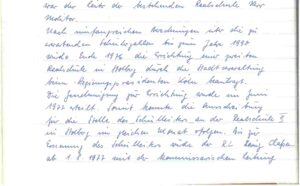 war der Leiter der bestehenden Realschule Herr
Molitor.
Nach umfangreichen Berechnungen über die zu
erwartenden Schülerzahlen bis zum Jahre 1990
wurde Ende 1976 die Errichtung einer zweiten
Realschule in Stolberg durch die Stadtverwaltung
beim Regierungspräsidenten Köln beantragt.
Die Genehmigung zur Errichtung wurde im Juni
1977 erteilt. Somit konnte die Ausschreibung
für die Stelle des Schulleiters an der Realschule II
in Stolberg im gleichen Monat erfolgen. Bis zur
Ernennung des Schulleiters wurde der RL
ab 1.8.1977 mit der kommissarischen Leitung